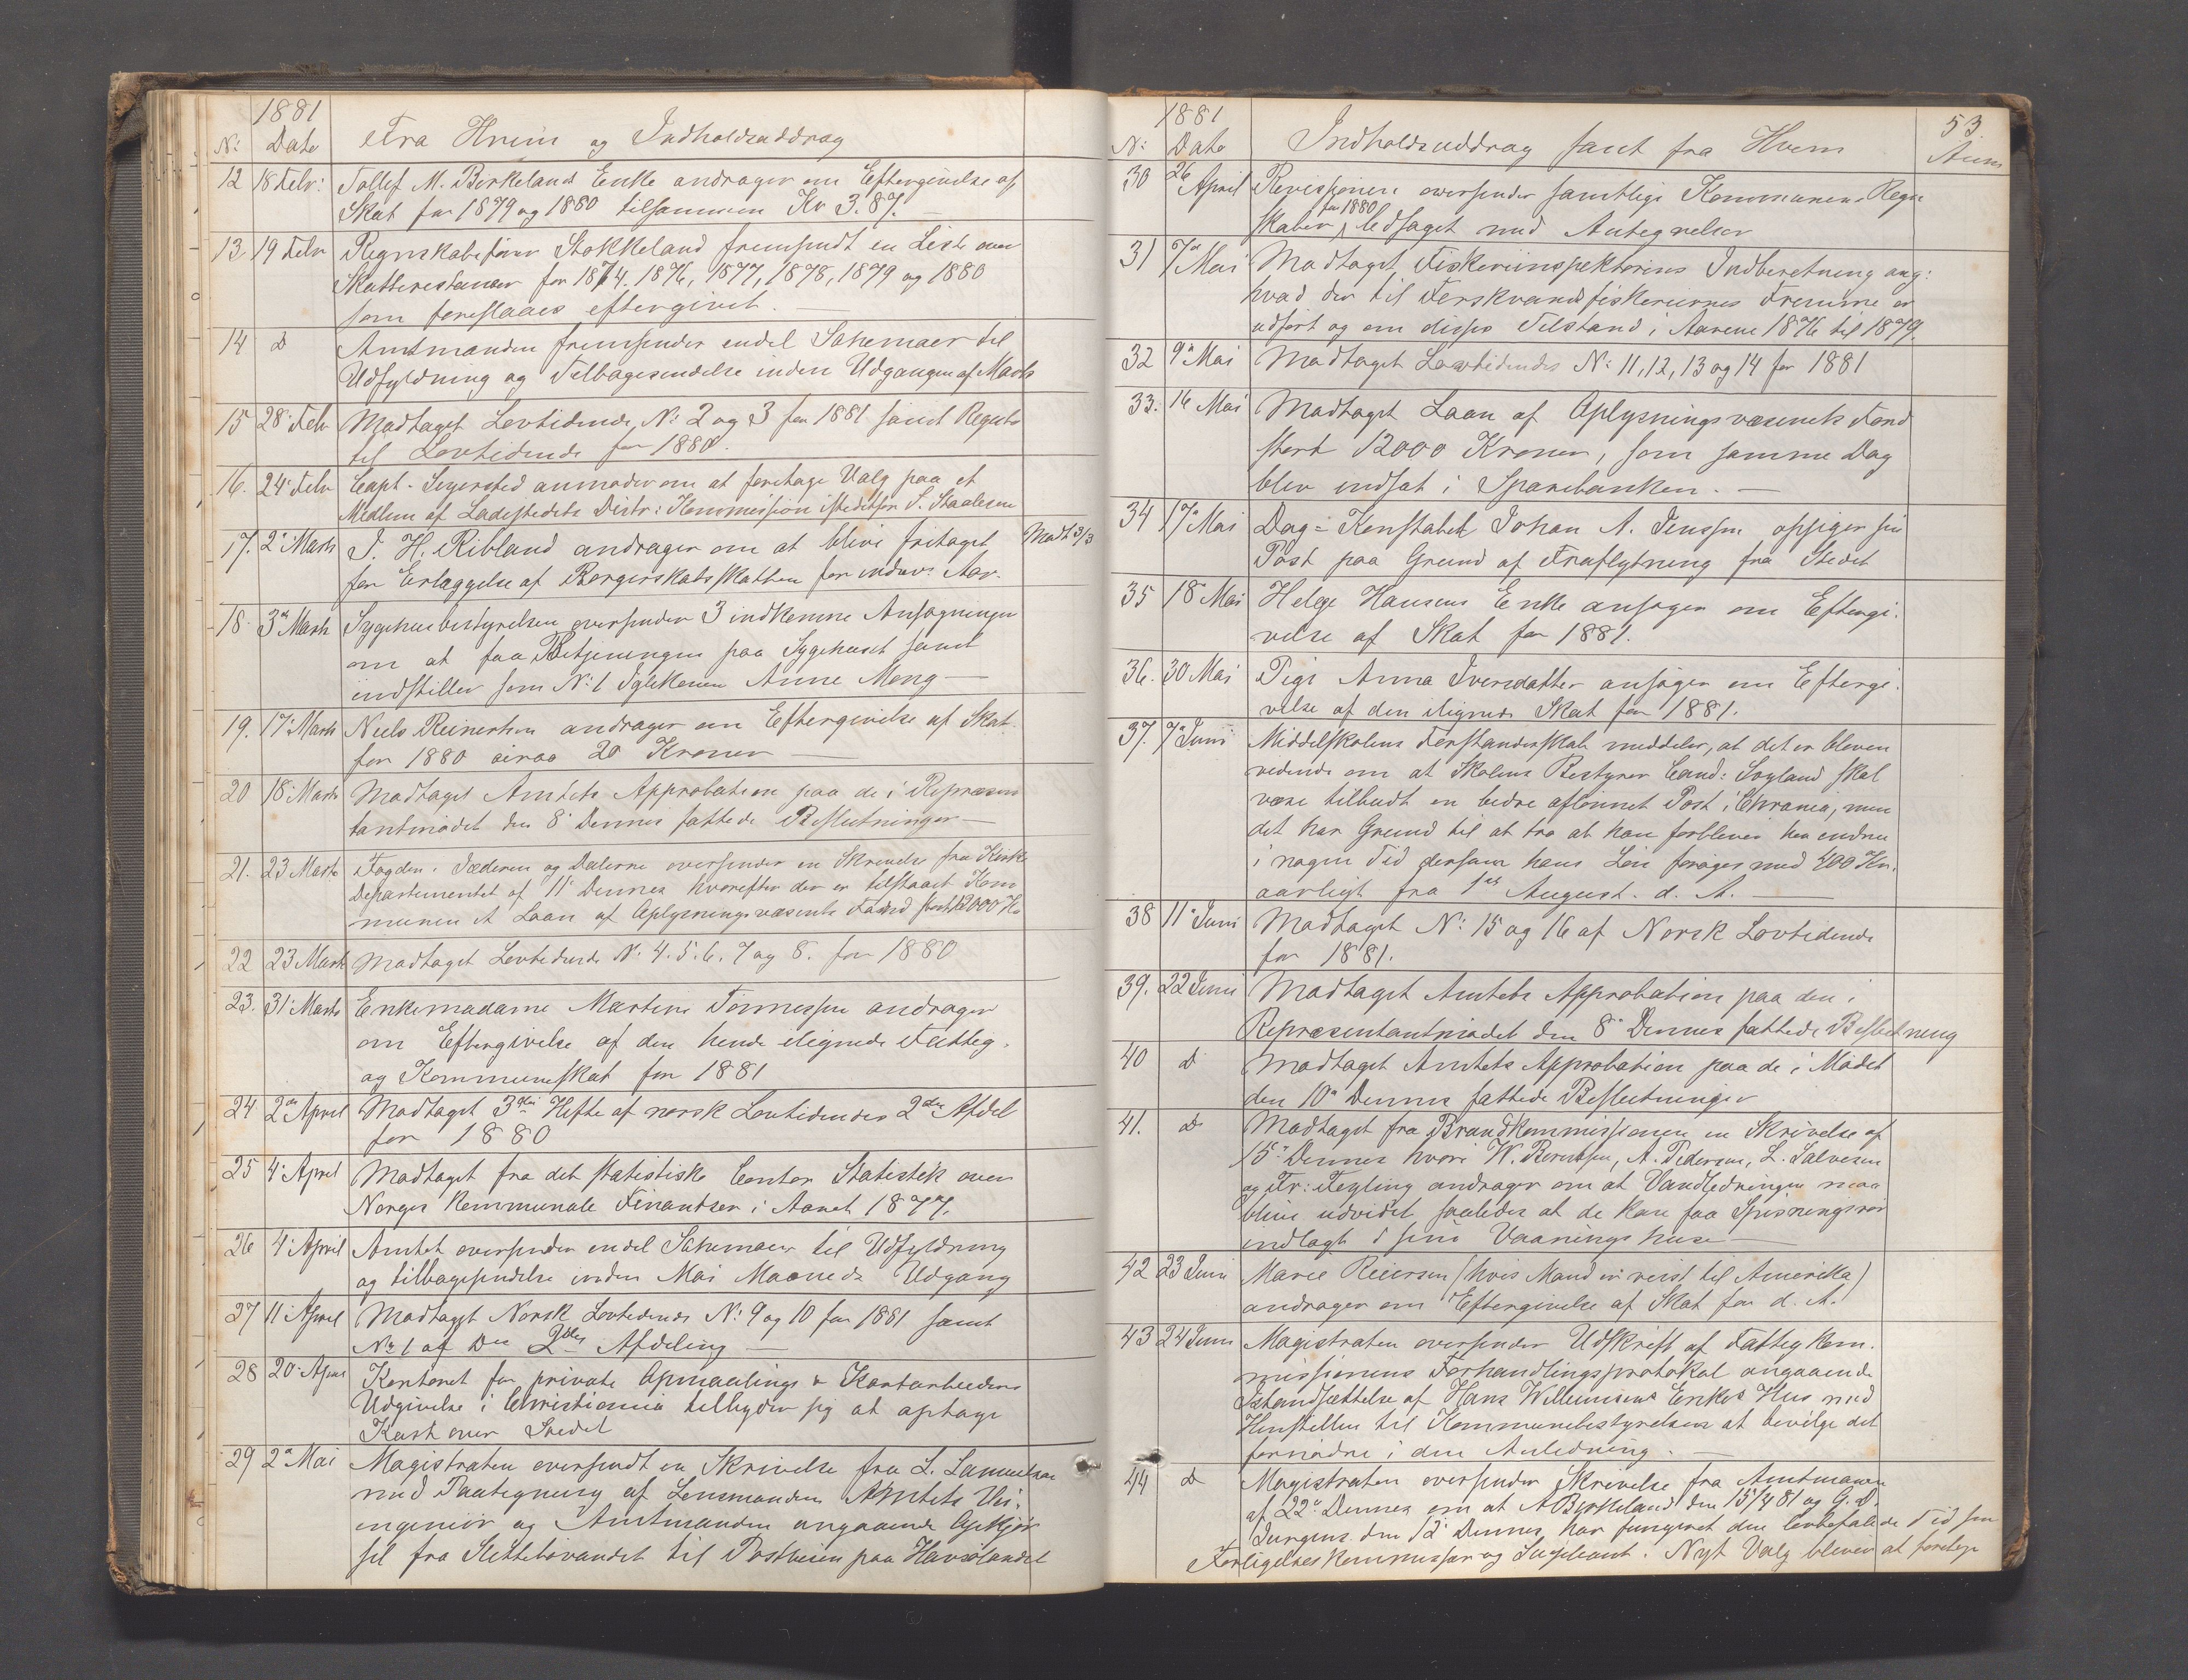 1881
N: Dato Fra Hvem og Indholdsuddrag
12 18 Febr: Tollef M. Birkelands Enke andrager om Eftergivelse af
Skat for 1879 og 1880 tilsammen Kr 3.87.
13 19 Febr Regnskabsfører Stokkeland fremsendt en Liste over
Skatterestancer for 1874. 1876, 1877, 1878, 1879 og 1880
som foreslaaes eftergivet.
14 D Amtmanden fremsender endel Schemaer til
Udfyldning og Tilbagesendelse inden Udgangen af Marts
15 28. Feb Modtaget Lovtidende N: 2 og 3 for 1881 samt Register
til Lovtidende for 1880.
16. 24. Febr Capt. Segersted anmoder om at foretage Valg paa et
Medlem af Ladestedets Distr: Kommission istedetfor S. Staalesen
17. 2. Marts J. H. Ribland andrager om at blive fritaget Modt 3/3
for Erlæggelse af Borgerskabsskatten for indev: Aar.
18. 3. Marts Sygehusbestyrelsen oversender 3 indkomne Ansøgninger
om at faa Betjeningen paa Sygehuset samt
indstiller som N: 1 Anne Mong
19. 17. Marts Niels Reinertsen andrager om Eftergivelse af Skat
for 1880 circa 20 Kroner
20 18. Marts Modtaget Amtets Approbation paa de i Repræsen
tantmødet den 8. Dennes fattede Beslutninger
21. 23 Marts Fogden i Jæderen og Dalerne oversender en Skrivelse fra Kirke
Departementet af 11. Dennes hvorefter der er tilstaaet Kom
munen et Laan af Oplysningsvæsenets Fond stort 12000 Kr
22 23 Marts Modtaget Lovtidende N: 4. 5. 6. 7 og 8. for 1880
23. 31. Marts Enkemadame Martine Tønnessen andrager
om Eftergivelse af den hende ilignede Fattig-
og Kommuneskat for 1881
24 2. April Modtaget 3die Hefte af norsk Lovtidendes 2den Afdel
for 1880
25 4. April Modtaget fra det statistiske Contor Statistik over
Norges kommunale Finantser i Aaret 1877.
26 4. April Amtet oversender endel Schemaer til Udfyldning
og tilbagesendelse inden Mai Maaneds Udgang
27 11. April Modtaget Norsk Lovtidende N: 9 og 10 for 1881 samt
No 1 af Dens 2den Afdeling
28 20. April Kontoret for private Opmaalings & Kartarbeiders
Udgivelse i Christiania tilbyder sig at optage
Kart over Stedet
29 2. Mai Magistraten oversendt en Skrivelse fra L. Samuelsen
med Paategning af Lensmanden Amtets Vei-
ingeniør og Amtmanden angaaende Opkjør
sel fra Slettebøvandet til Postveien paa Havsølandet
1881 53.
N: Dato Indholdsuddrag samt fra Hvem Anm
30 26 April Revisjonen oversender samtlige Kommunens Regn
skaber for 1880, ledsaget med Antegnelser
31 7. Mai Modtaget Fiskeriinspektørens Indberetning ang:
hvad der til Ferskvandsfiskeriernes Fremme er
udført og om disses Tilstand i Aarene 1876 til 1879.
32 9. Mai Modtaget Lovtidendes N: 11, 12, 13 og 14 for 1881
33. 16 Mai Modtaget Laan af Oplysningsvæsenets Fond
stort 12000 Kroner, som samme Dag
blev indsat i Sparebanken.
34 17. Mai Dag-Konstabel Johan A. Jenssen opsiger sin
Post paa Grund af Fraflytning fra Stedet
35 18 Mai Helge Hansens Enke ansøger om Eftergi-
velse af Skat for 1881.
36. 30 Mai Pige Anna Iversdatter ansøger om Eftergi-
velse af den ilignede Skat for 1881.
37. 7. Juni Middelskolens Forstanderskab meddeler, at det er bleven
vidende om at Skolens Bestyrer Cand: Sogland skal
være tilbudt en bedre aflønnet Post i Chrania, men
det har Grund til at tro at han forbliver her endnu
i nogen Tid dersom hans Løn forøges med 400 Kr.
aarligt fra 1ste August. d. A.
38 11. Juni Modtaget N: 15 og 16 af Norsk Lovtidende
for 1881.
39. 22 Juni Modtaget Amtets Approbation paa den i
Repræsentantmødet den 8. Dennes fattede Beslutning
40 D Modtaget Amtets Approbation paa de i Mødet
den 10. Dennes fattede Beslutninger
41. D Modtaget fra Brandkommissionen en Skrivelse af
15. Dennes hvori W. Berentsen, A. Pedersen, L. Salvesen
og Fr: Feyling andrager om at Vandledningen maa
blive udvidet saaledes at de kan faa Spisningsrør
indlagt i sine Vaaningshuse
42 23 Juni Maree Reiersen (hvis Mand er reist til Amerika)
andrager om Eftergivelse af Skat for d. A.
43 24 Juni Magistraten oversender Udskrift af Fattigkom-
missionens Forhandlingsprotokol angaaende
Istandsættelse af Hans Willumsens Enkes Hus med
Henstillen til Kommunebestyrelsen at bevilge det
fornødne i den Anledning.
44 D Magistraten oversender Skrivelse fra Amtmanden
af 22. Dennes om at A Byrkeland den 15/4 81 og G. D.
Jurgens den 12. Dennes har fungeret den lovbefalede Tid som
Forligelseskommissær og Suppleant. Nyt Valg bliver at foretage